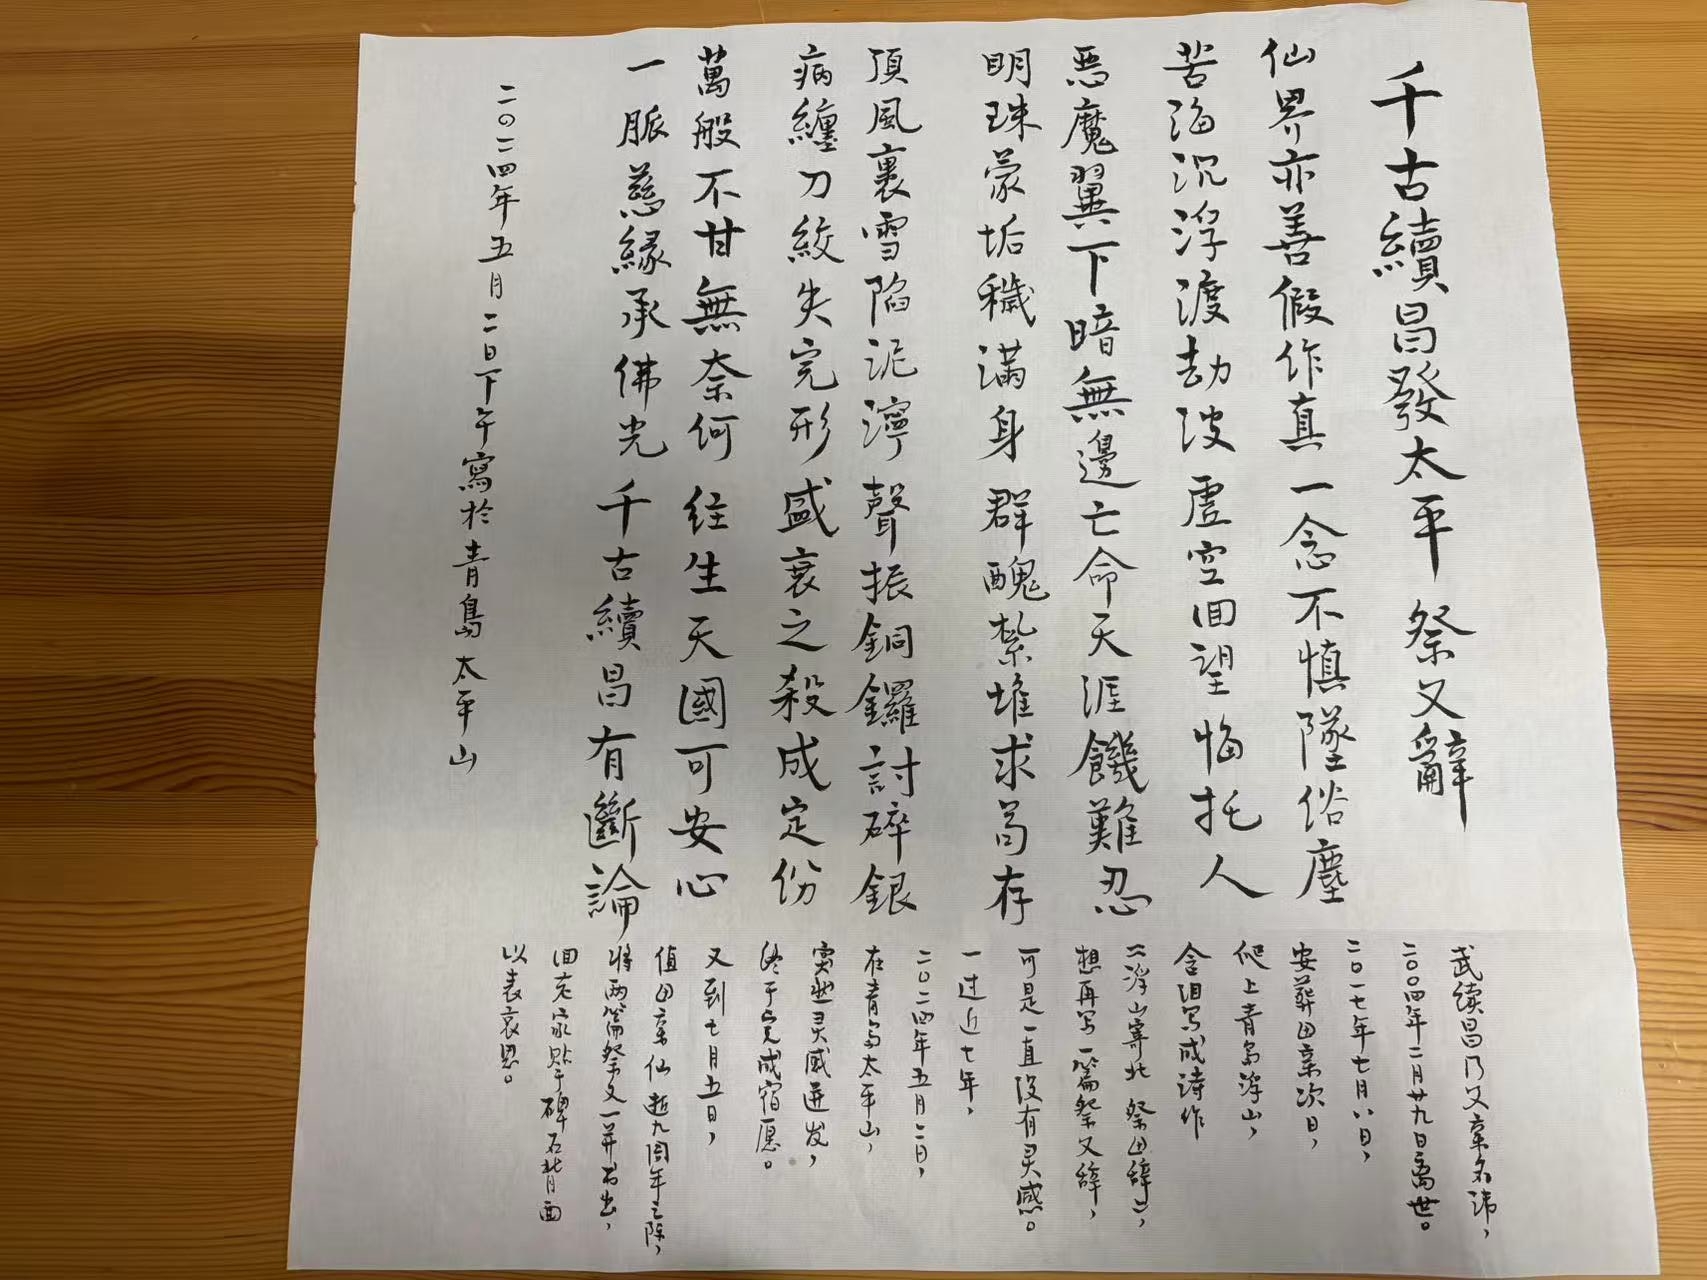 千古續昌發太平 祭父辭
仙界亦善假作真 一念不慎墜俗塵
苦海沉浮渡劫波 虛空回望悔托人
惡魔翼下暗無邊 亡命天涯饑難忍
明珠蒙垢穢滿身 群醜紮堆求苟存
頂風裹雪陷泥濘 聲振銅鑼討碎銀
病纏刀絞失完形 盛衰之殺成定份
萬般不甘無奈何 往生天國可安心
一脈慈緣承佛光 千古續昌有斷論
二〇二四年五月二日下午寫於青島太平山
武续昌乃父亲名讳，
二〇〇四年二月廿九日离世。
二〇一七年七月八日，
安葬母亲次日，
爬上青岛浮山，
含泪写成诗作
《浮山寄北 祭母辞》，
想再写一篇祭父辞，
可是一直没有灵感。
一过近七年，
二〇二四年五月二日，
在青岛太平山，
突然灵感迸发，
终于完成宿愿。
又到七月五日，
值母亲仙逝九周年之际，
将两篇祭文一并书出，
回老家贴于碑石背面
以表哀思。